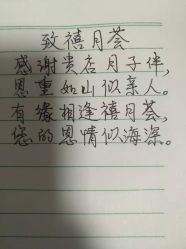 致禧月荟
感谢贵店月子伴，
恩重如山似亲人。
有缘相逢禧月荟，
您的恩情似海深。